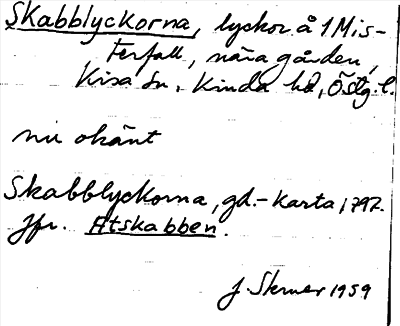 Skabblyckorna, lyckor å 1 Mis-
terfall, nära gården,
Kisa sn, Kinda hd, Östg. l.
nu okänt
Skabblyckorna, gd.-karta 1792.
Jfr. Åtskabben.
J. 1959